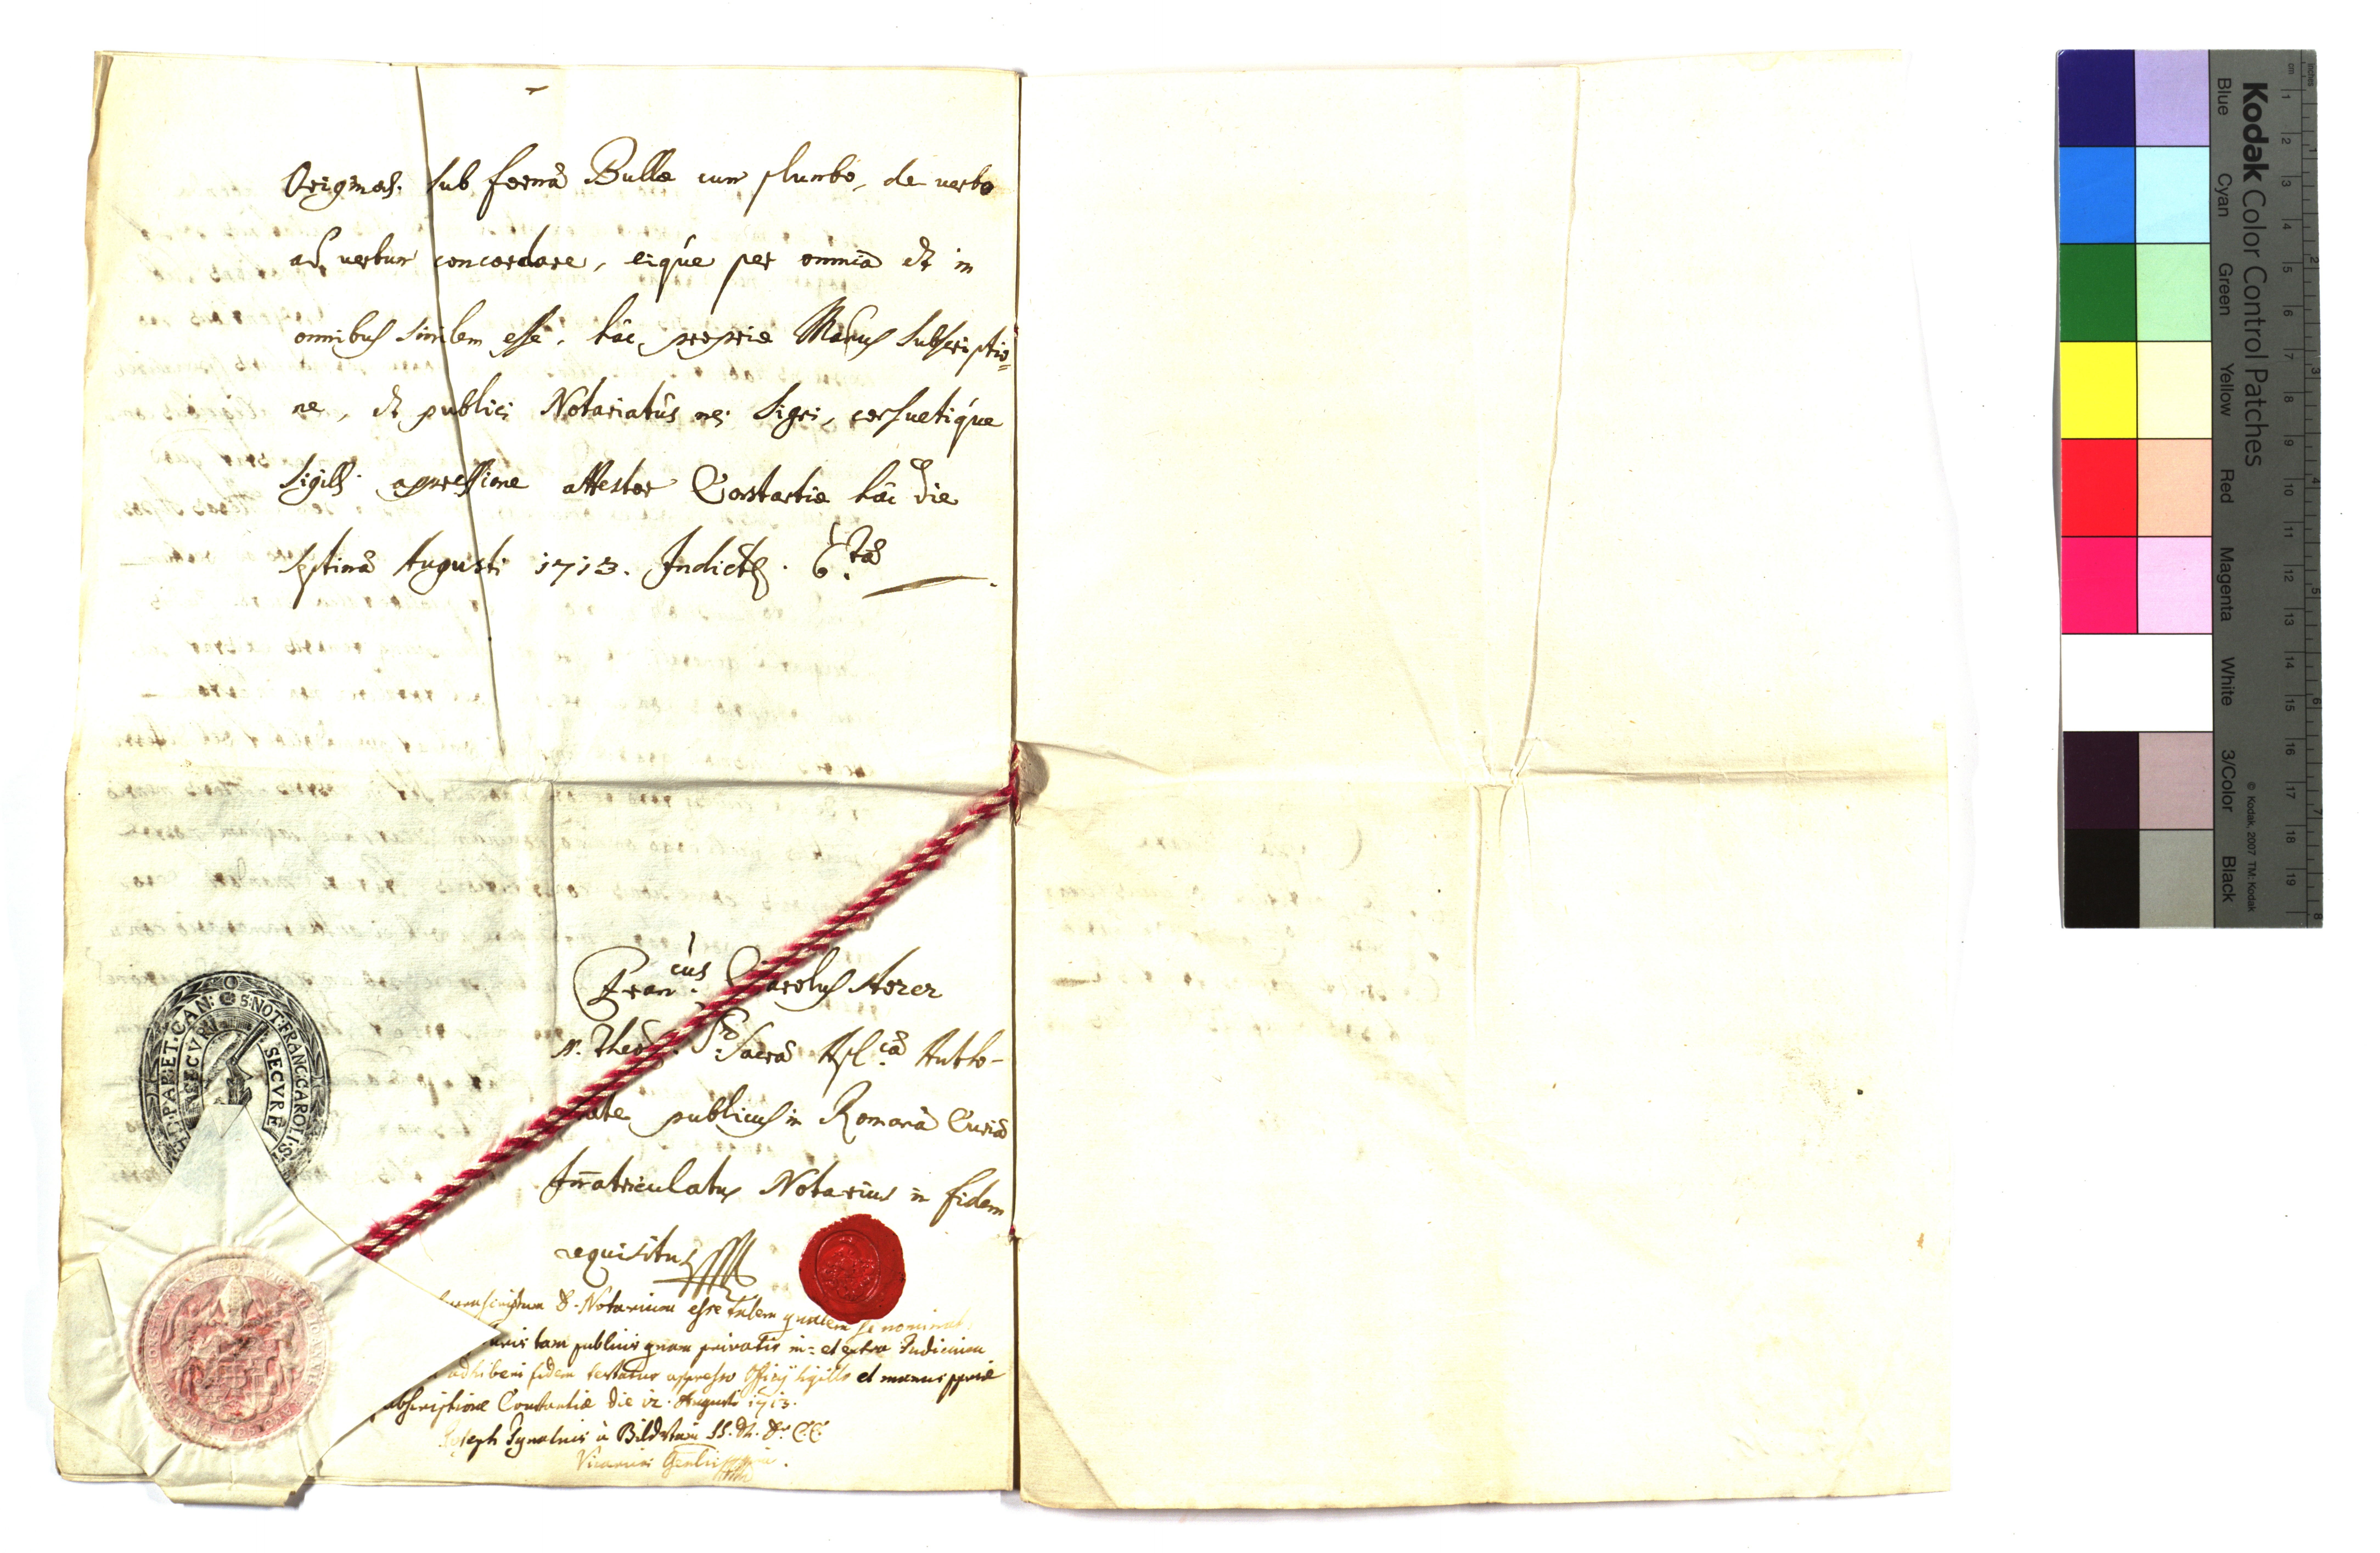 Originali sub formâ Bullæ cum plumbo, de verbo
ad verbum concordare, eique per omnia et in
omnibus similem esse, hâc propriæ Manus subscriptio=
ne, et publici Notariatûs mei Signi, consuetique
Sigilli appressione attestor Constantiæ hâc die
septimâ Augusti 1713. Indict. 6.tâ
Fran:cus Carolus Storer
Ss. Theol. Sacrâ Apl.câ Autho-
publicus in Romanâ Curiâ
Im̄atriculatus Notarius in fidem
requisitus
D. Notarium esse talem qualem se nominat
tam publicis quam privatis in= et extra Judicium
adhiberi fidem testatur appresso Officij sigillo et manus ppriæ
subscriptione Constantiæ die 12. Augusti 1713.
Joseph Ignatius à Bildstein SS. Th. Dr. C.C.
Vicarius Genlis
AP. PAR. ET. CAN: S: NOT: FRANC: CAROLI: S
NEC CVR SECVRE
Kodak Color Control Patches
Blue Cyan Green Yellow Red Magenta White 3/Color Black
© Kodak, 2007 TM: Kodak
inches 1 2 3 4 5 6 7 8
cm 1 2 3 4 5 6 7 8 9 10 11 12 13 14 15 16 17 18 19